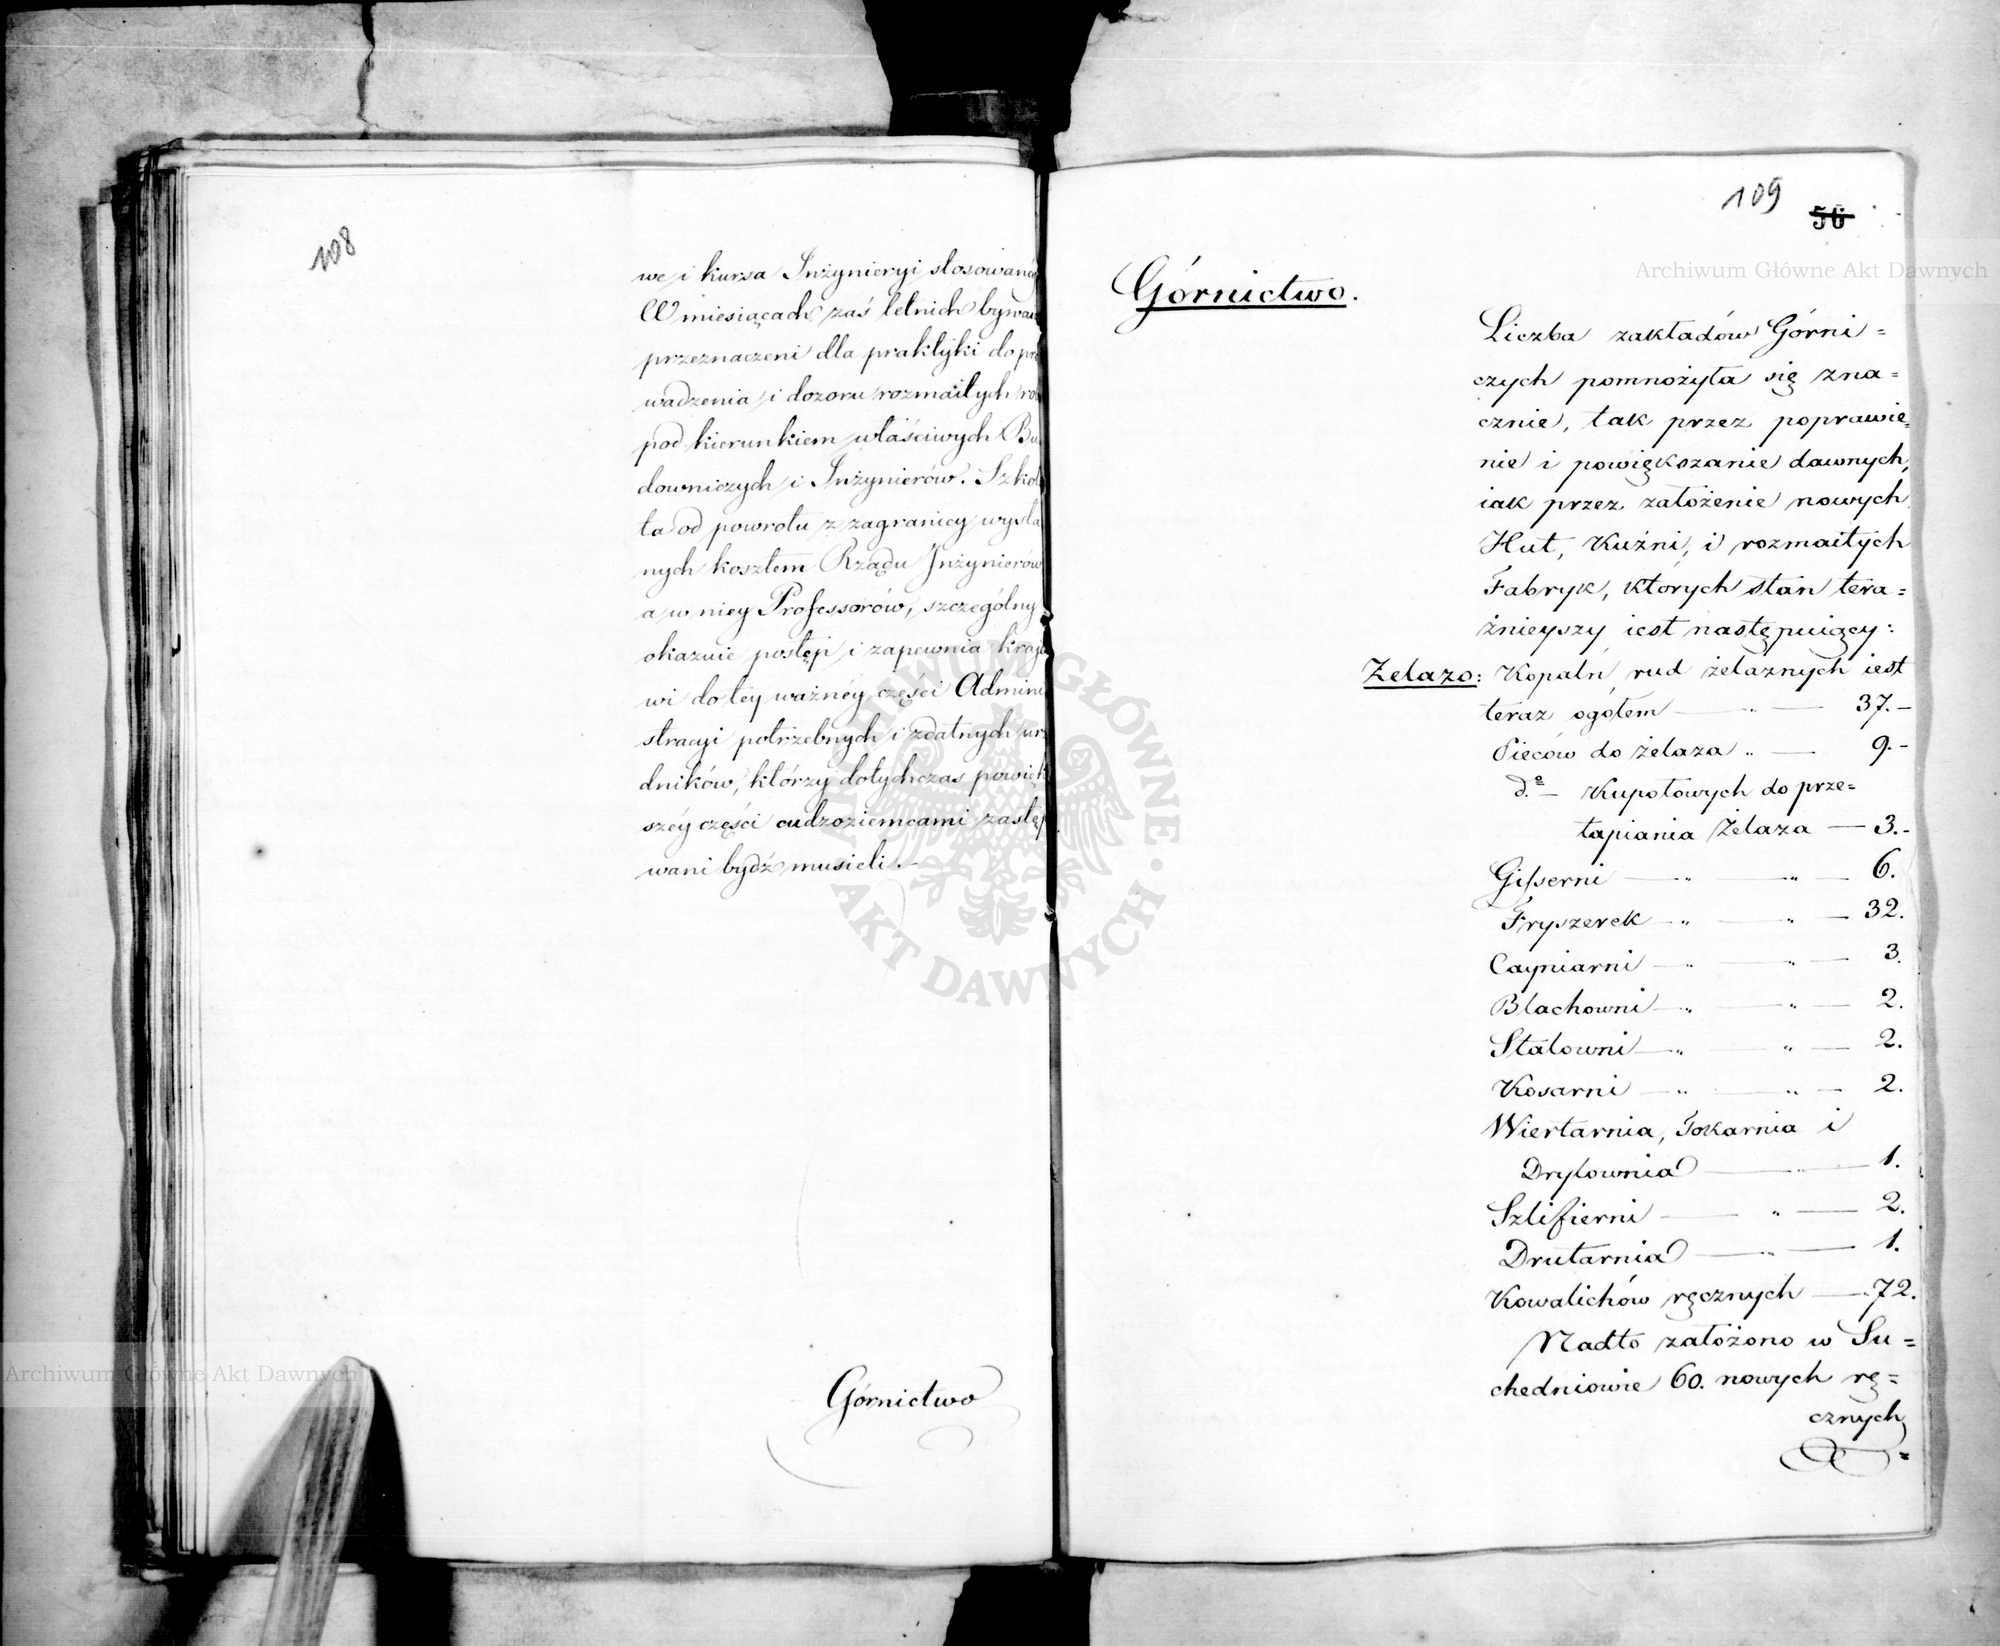 108
we i kursa Inżynieryi stosowanéy
W miesiącach zaś letnich bywaią
przeznaczeni dla praktyki do pro
wadzenia i dozoru rozmaitych
pod kierunkiem właściwych Bu
downiczych i Inżynierów. Szkoł
ta od powrotu z zagranicy wysła
nych kosztem Rządu Inżynierów
a w niey Professorów, szczególny
okazuie postęp i zapewnia krajo
wi do tey ważnéy części Admini
stracyi potrzebnych i zdatnych urz
dników, którzy dotychczas powięk
széy części cudzoziemcami zastęp
wani bydź musieli.
Górnictwo
109
50
Górnictwo.
Liczba zakładów Górni=
czych pomnożyła się zna=
cznie, tak przez poprawie=
nie i powiększanie dawnych,
iak przez założenie nowych
Hut, Kuźni, i rozmaitych
Fabryk, których stan tera=
źnieyszy iest następuiący:
Żelazo: Kopalń rud żelaznych iest
teraz ogółem — „ — 37.-
Pieców do żelaza „ — 9.-
d.º — Kupolowych do prze=
tapiania Żelaza — 3.-
Gisserni — „ — „ — 6.
Fryszerek — „ — „ — 32.
Cayniarni — „ — „ — 3.
Blachowni — „ — „ — 2.
Stalowni — „ — „ — 2.
Kosarni — „ — „ — 2.
Wiertarnia, Tokarnia i
Drylownia — „ — 1.
Szlifierni — „ — 2.
Drutarnia — „ — 1.
Kowalichów ręcznych — 72.
Nadto założono w Su=
chedniowie 60. nowych rę=
cznych
=
Archiwum Główne Akt Dawnych
Archiwum Główne Akt Dawnych
ARCHIWUM GŁÓWNE AKT DAWNYCH